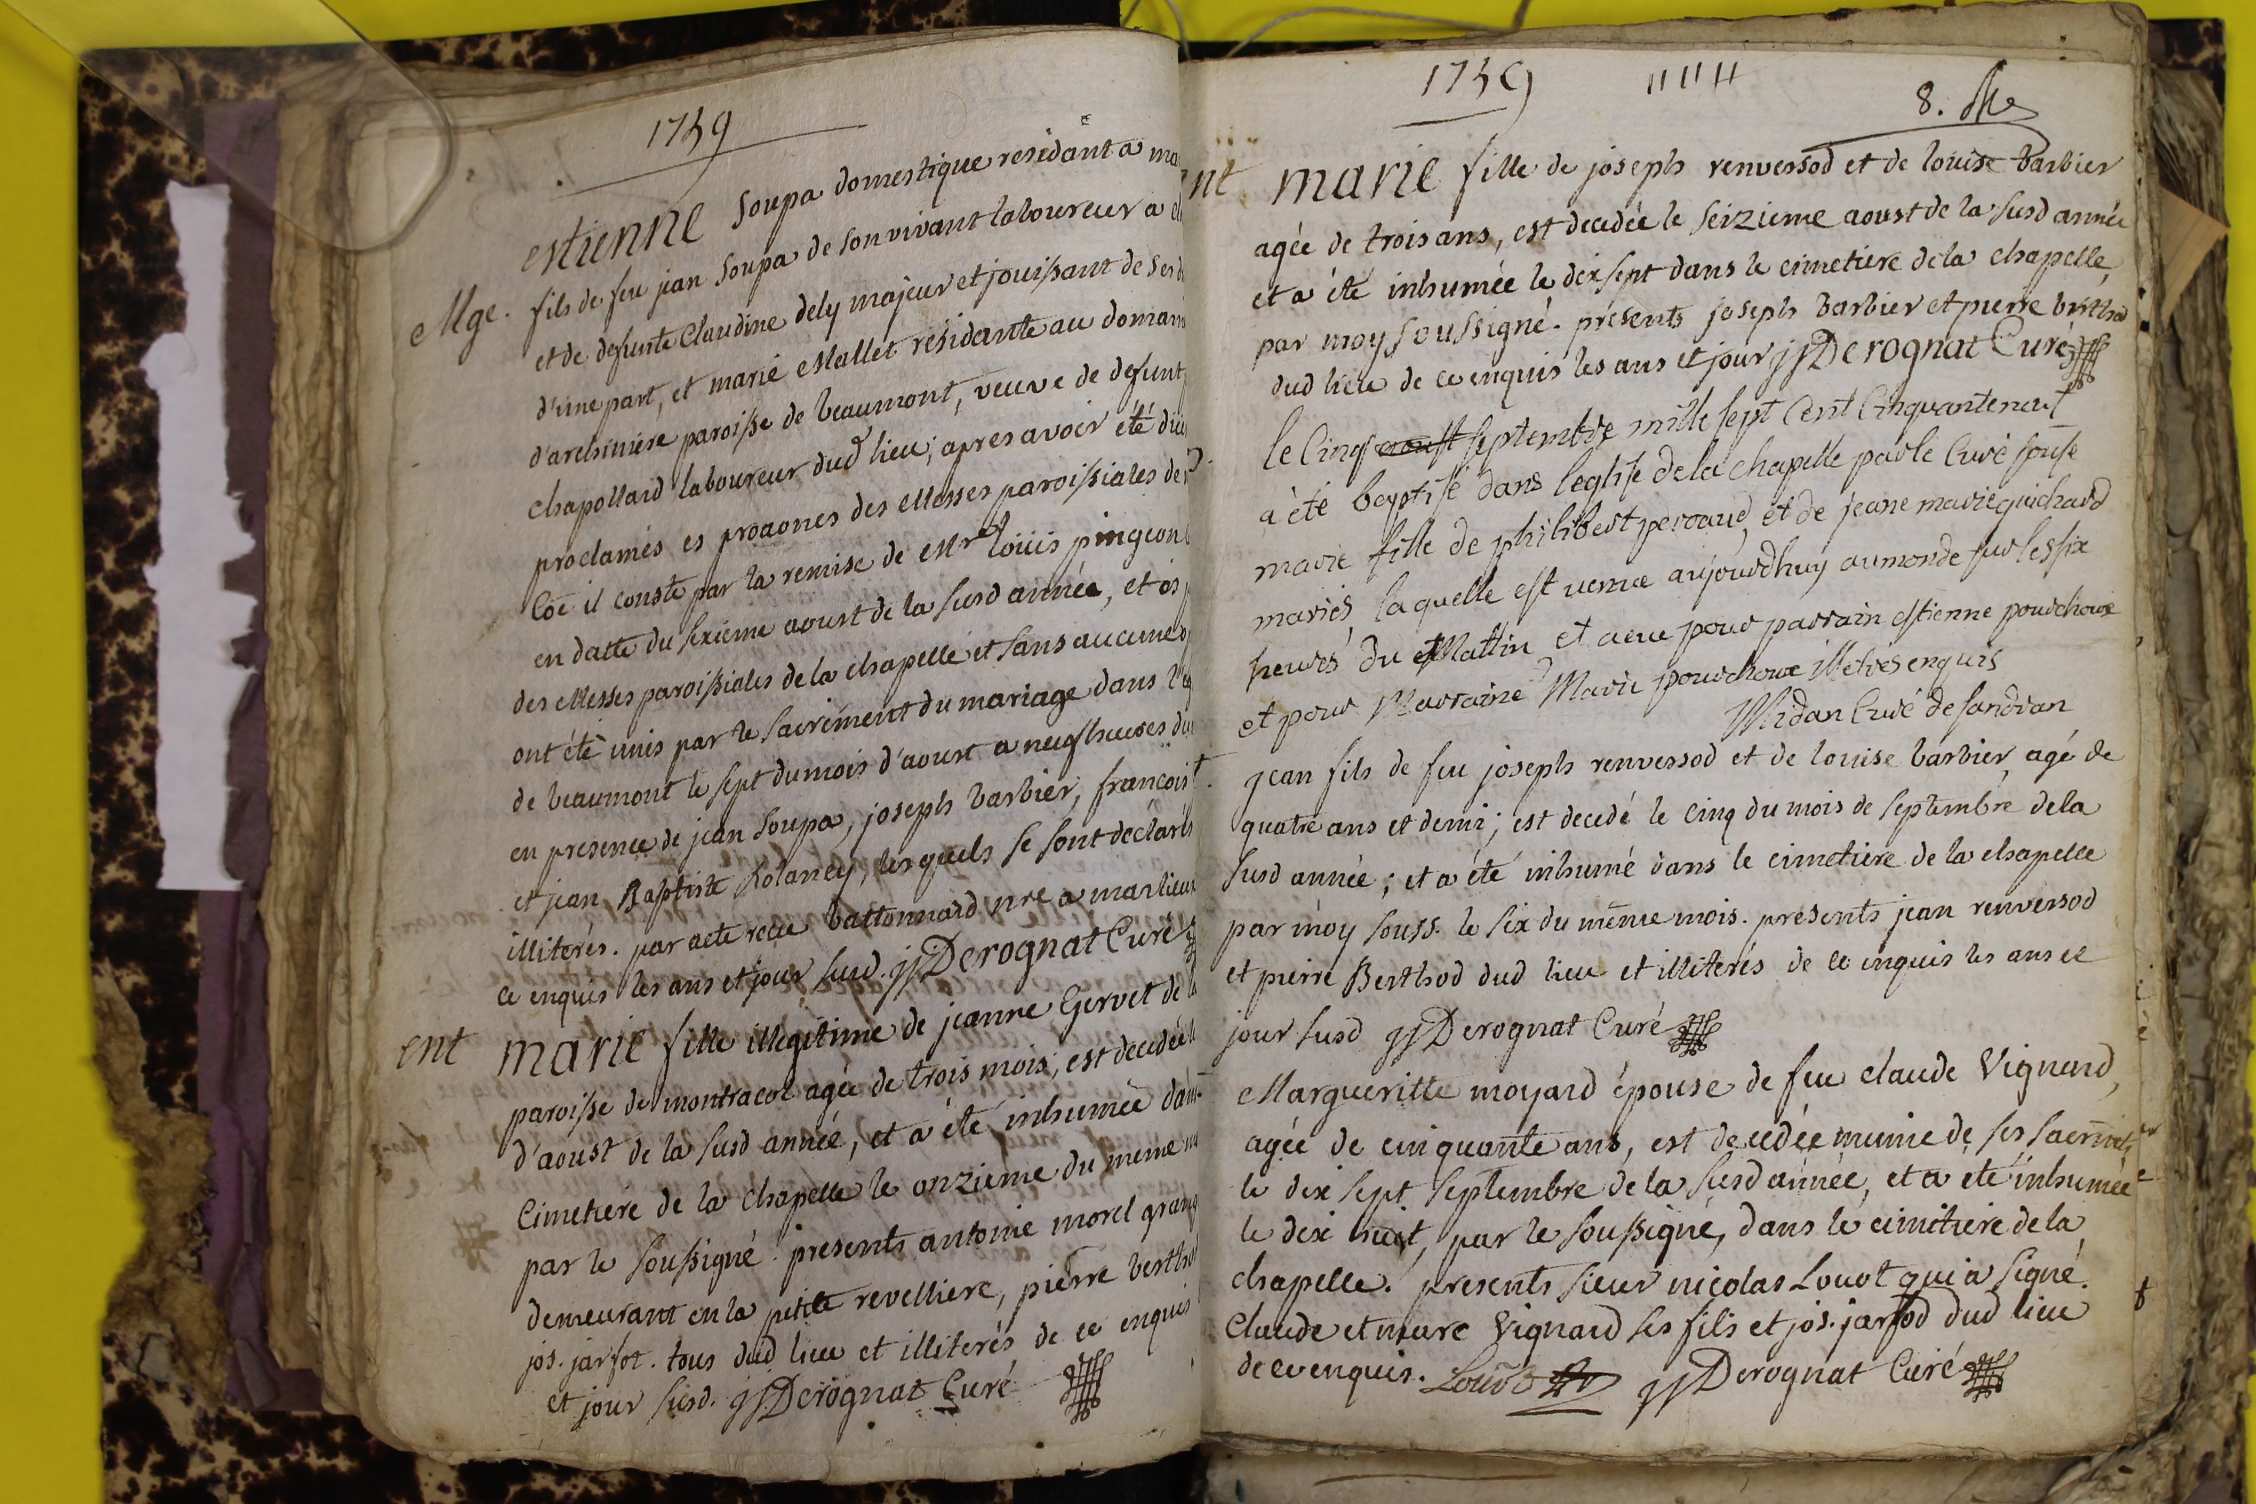 1759
estienne Soupa domestique residant a ma
Mge. fils de feu jean Soupa de son vivant laboureur a
et de defunte Claudine dely majeur et jouissant de ses d
d'une part, et marie Mallet residante au domain
d'archiniere paroisse de beaumont, veuve de defunt
chapollard laboureur dud lieu; apres avoir été
proclamés es proaones des Messes paroissiales de
Cõe il conste par la remise de Mr louis pingeon
en datte du sixieme aoust de la susd année, et
des Messes paroissiales de la chapelle et sans aucune
ont été unis par le Sacrement du mariage dans
de beaumont le sept du mois d'aoust a neuf heures du
en presence de jean Soupa, joseph barbier, françois
et jean Baptiste Rolancy, lesquels se sont declarés
illiterés. par acte recu battonnard nre a marlieux
ce enquis les ans et jour susd. jjDerognat Curé
ent marie fille illegitime de jeanne Gervet de
paroisse de montracol agée de trois mois; est decedée
d'aoust de la susd année, et a été inhumée dans
Cimetiere de la chapelle le onzieme du meme
par le soussigné. presents antoine morel grang
demeurant en la petite revelliere, pierre berthod
jos. jarfot. tous dud lieu et illiterés de ce enquis
et jour susd. jjDerognat Curé
1759
8.
ent marie fille de joseph renversod et de louise barbier
agée de trois ans, est decedée le seizieme aoust de la susd année
et a été inhumée le dix sept dans le cimetiere de la chapelle,
par moy soussigné. presents joseph barbier et pierre berthod
dud lieu de ce enquis les ans et jour jjDerognat Curé
le Cinq aoust septembre mille sept cent Cinquante neuf
a été baptisé dans leglise de la chapelle par le Curé sousse
marie fille de philibert peroaud et de jeane marie guichard
mariés laquelle est venue aujourdhuy au monde sur les six
heures du Mattin et a eue pour parrain estienne pourchoux
et pour Marraine Marie pourchoux illetrés enquis
Midan Curé de sandran
jean fils de feu joseph renversod et de louise barbier, agé de
quatre ans et demi; est decedé le cinq du mois de septembre de la
susd année; et a été inhumé dans le cimetiere de la chapelle
par moy souss. le six du même mois. presents jean renversod
et pierre Berthod dud lieu et illiterés de ce enquis les ans et
jour susd jjDerognat Curé
Margueritte moyard épouse de feu claude Vignard,
agée de cinquante ans, est decedée munie de ses sacrmts,
le dix sept septembre de la susd année, et a été inhumée
le dix huit, par le soussigné, dans le cimetiere de la
chapelle. presents sieur nicolas Louot qui a signé.
Claude et marc Vignard ses fils et jos. jarfod dud lieu
de ce enquis. Louot jjDerognat Curé